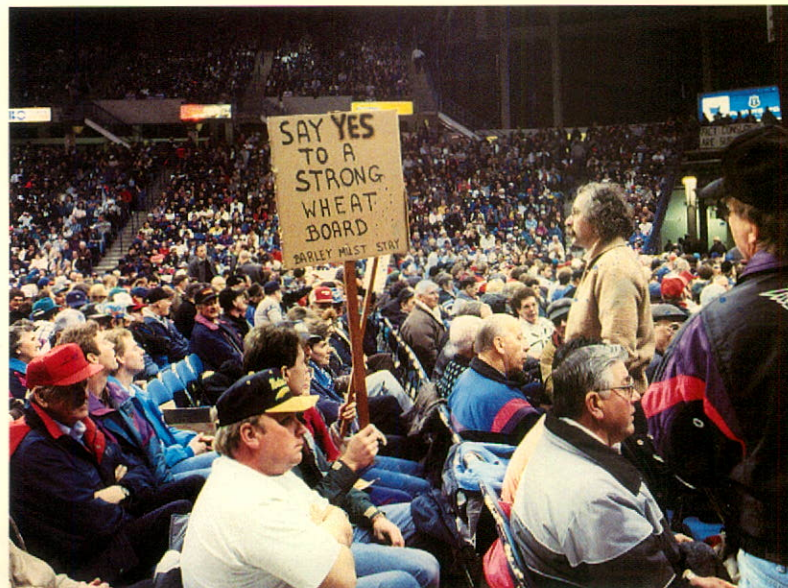 SAY YES
TO A
STRONG
WHEAT
BOARD
BARLEY MUST STAY